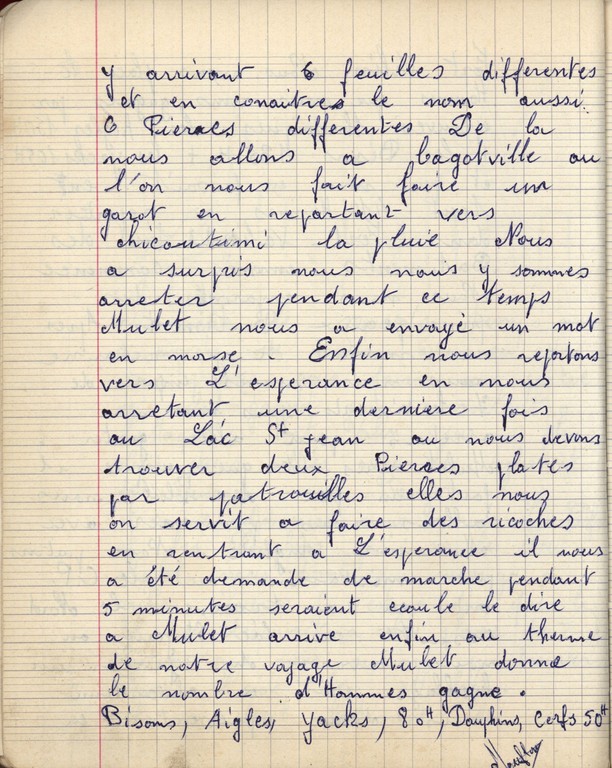 y arrivant 6 feuilles differentes
et en conaitres le nom aussi.
6 Pieraes differentes De la
nous allons a bagotville ou
l'on nous fait faire un
garot en repartant vers
chicoutimi la pluie Nous
a surpris nous nous y sommes
arreter pendant ce temps
Mulet nous a envoyé un mot
en morse. Enfin nous repartons
vers L'esperance en nous
arretant une derniere fois
au Lac St jean ou nous devons
trouver deux Pieraes plates
par patrouilles elles nous
on servit a faire des ricoches
en rentrant a L'esperance il nous
a été demande de marche pendant
5 minutes seraient ecoule le dire
a Mulet arrive enfin au therme
de notre voyage Mulet donne
le nombre d'Hommes gagne.
Bisons, Aigles, Yacks, 80H, Dauphins, Cerfs 50H